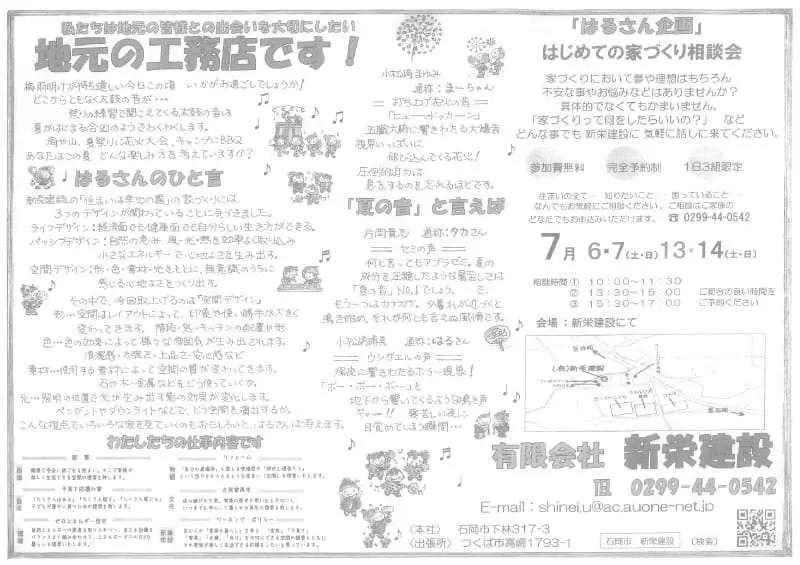 私たちは地元の皆様との出会いを大切にしたい
地元の工務店です！
梅雨明けが待ち遠しい今日この頃 いかがお過ごしでしょうか！
どこからともなく太鼓の音が…
祭りの練習で聞こえてくる太鼓の音は
夏がはじまる合図のようでわくわくします。
海や山、夏祭りに花火大会、キャンプにBBQ
あなたはこの夏 どんな楽しみ方を考えていますか？
はるさんのひと言
新栄建設の「住まいは幸せの器」の家づくりには、
3つのデザインが関わっていることに気づきました。
ライフデザイン：経済面でも健康面でも自分らしい生き方ができる。
パッシブデザイン：自然の恵み 風・光・熱を効率よく取り込み
小さなエネルギーで心地よさを生み出す。
空間デザイン：形・色・素材・光をもとに、無意識のうちに
感じる心地よさをつくり出す。
その中で、今回取上げるのは「空間デザイン」
形…空間はレイアウトによって、印象や使い勝手が大きく
変わってきます。 階段・窓・キッチンの配置や形
色…色の効果によって様々な雰囲気が生み出されます。
清潔感・力強さ・上品さ・安心感など
素材…使用する素材によって空間の質が変わってきます。
石や木・金属などをどう使っていくか。
光…照明の位置で光が生み出す影の効果が変化します。
ペンダントやダウンライトなどで、どう空間を演出するか。
こんな視点でいろいろな家を見ていくのもおもしろいと、はるさんは考えます。
わたしたちの仕事内容です
新 事
リフォーム
古民家再生
ゼロエネルギー住宅
小松崎まゆみ
通称：まーちゃん
― 打ち上げ花火の音 ―
「ヒューードッカーン」
五臓六腑に響きわたる大爆音
視界いっぱいに
飛び込んでくる花火！
圧倒的迫力は
息をするのも忘れるほどです。
「夏の音」と言えば
片岡貴志 通称：タカさん
― セミの声 ―
何と言ってもアブラゼミ。夏の
成分を圧縮したような暑苦しさは
「夏の音」No.1でしょう。 で、
もう一つはカナカナ。夕暮れが近づくと
鳴き始め、それが何とも言えぬ風情です。
小松崎晴美 通称：はるさん
― ウシガエルの声 ―
深夜に響きわたるホラー現象！
「ボー・ボー・ボー」と
地下から響いてくるような鳴き声
ギャー！！ 寝苦しい夜に
目覚めてしまう瞬間…
「はるさん企画」
はじめての家づくり相談会
家づくりにおいて夢や理想はもちろん
不安な事やお悩みなどはありませんか？
具体的でなくてもかまいません。
「家づくりって何をしたらいいの？」 など
どんな事でも 新栄建設に 気軽に話しに来てください。
参加費無料 完全予約制 1日3組限定
住まいの全て… 知りたいこと… 困っていること…
なんでもお気軽にご相談ください。ご相談はご家族の
どなたでもお申込みいただけます。 ☎ 0299-44-0542
7月 6・7(土・日) 13・14(土・日)
相談時間 ① 10：00～11：30
② 13：30～15：00 ご都合の良い時間を
③ 15：30～17：00 ご予約ください
会場：新栄建設にて
(有)新栄建設
有限会社 新栄建設
℡ 0299-44-0542
E-mail：shinei.u@ac.auone-net.jp
〈本社〉 石岡市下林317-3
〈出張所〉 つくば市高崎1793-1
石岡市 新栄建設 [検索]